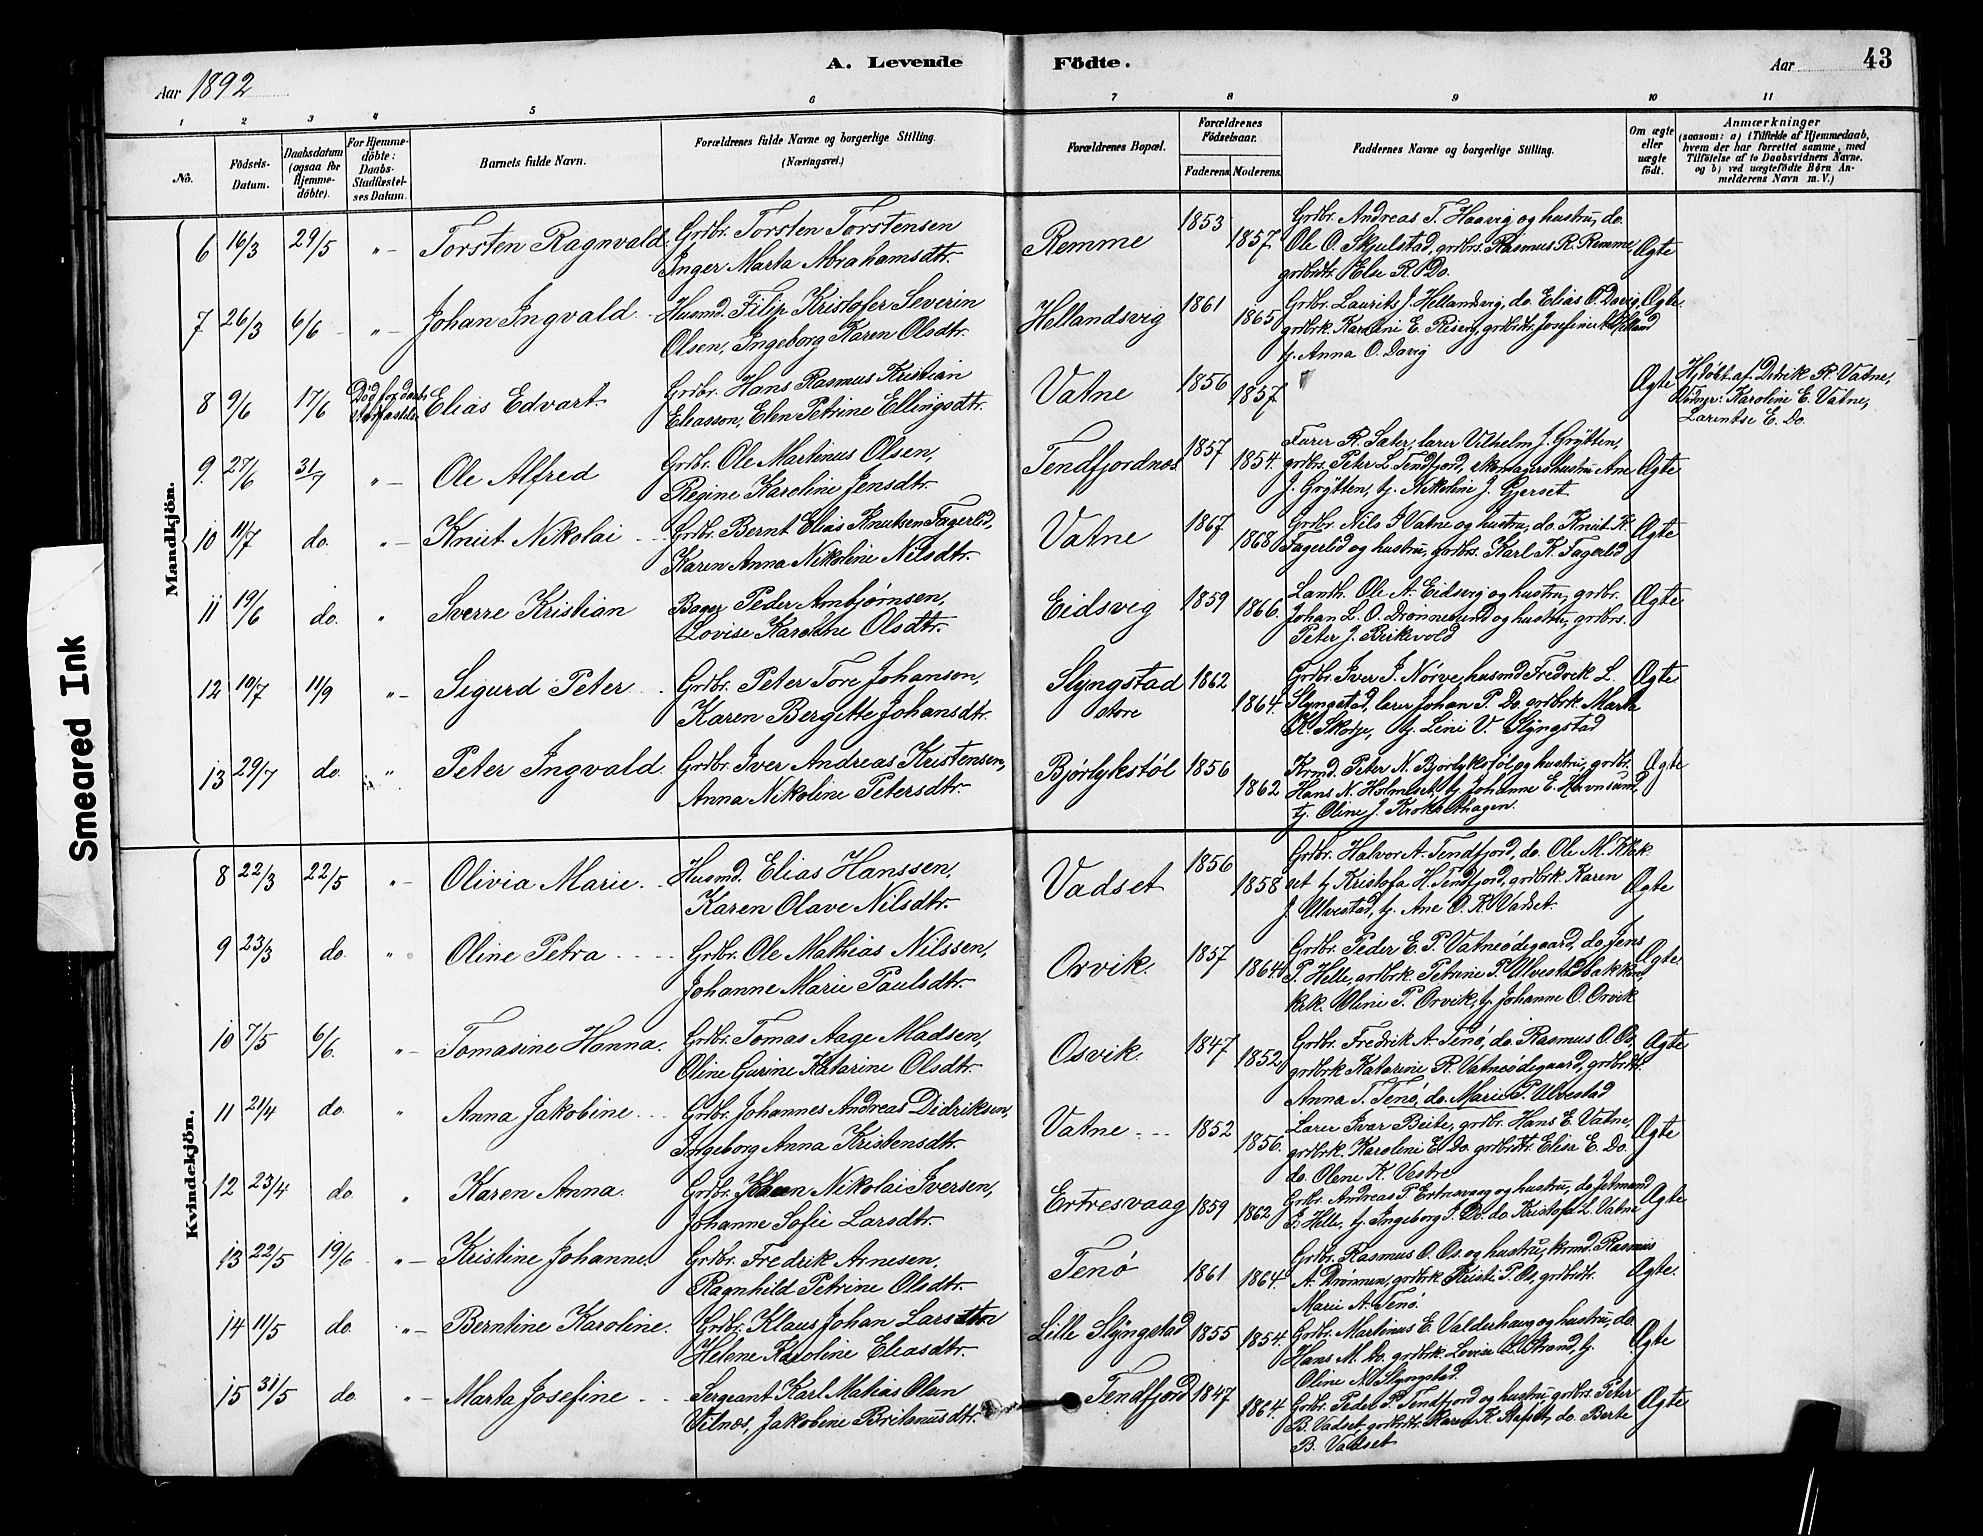 A. Levende Födte.
Aar 43
Aar 1892
1 2 3 4 5 6 7 8 9 10 11
No.
Födsels-Datum.
Daabsdatum (ogsaa for Hjemme-döbte).
For Hjemme-döbte: Daabs-Stadfæstel-ses Datum.
Barnets fulde Navn.
Forældrenes fulde Navne og borgerlige Stilling.
(Næringsvei.)
Forældrenes Bopæl.
Forældrenes Födselsaar.
Faderens Moderens
Faddernes Navne og borgerlige Stilling.
Om ægte eller uægte födt.
Anmærkninger
(saasom: a) i Tilfælde af Hjemmedaab,
hvem der har forrettet samme, med
Tilföielse af to Daabsvidners Navne.
og b) ved uægtefödte Börn An-
melderens Navn m. V.)
Mandkjön.
6 16/3 29/5 " Torsten Ragnvald. Grdbr. Torsten Torstensen
Inger Marta Abrahamsdtr.
Remme 1853 1857
Grdbr. Andreas T. Haavig og hustru, do.
Ole O. Skjelstad, grdbrs. Rasmus R. Remme
grdbdtr. Else R. Do.
Ægte
7 26/3 6/6 " Johan Ingvald Husmd. Filip Kristofer Severin
Olsen, Ingeborg Karen Olsdtr.
Hellandsvig 1861 1865
Grdbr. Laurits J. Hellandsvig, do. Elias O. Davig
grdbrk. Karoline E. Reiseng, grdbdtr. Josefine Helland
tj. Anna O. Davig
Ægte
8 9/6 17/6 Död for daabs Elias Edvart Grdbr. Hans Rasmus Kristian
Eliasson, Elen Petrine Ellingsdtr.
Vatne 1856 1857
Ægte
Hjdöbt af Didrik R. Vatne,
Vidner: Karoline E. Vatne,
Larentse E. Do.
9 27/6 31/7 " Ole Alfred Grdbr. Ole Martinus Olsen,
Regine Karoline Jensdtr.
Tendfjordnes 1857 1854.
Furer R. Sater, lærer Vilhelm J. Grytten,
grdbrs. Peter L. Tendfjord, skomagershustru Ane
J. Grytten, tj. Nikoline J. Gjerset
Ægte
10 11/7 do. " Knut Nikolai Grdbr. Bernt Elias Knutsen Fagerlid,
Karen Anna Nikoline Nilsdtr.
Vatne 1867 1868
Grdbr. Nils J. Vatne og hustru, do. Knut K.
Fagerlid og hustru, grdbrs. Karl K. Fagerlid
Ægte
11 19/6 do. " Sverre Kristian Bager Peder Ambjørnsen,
Lovise Karoline Olsdtr.
Eidsvig 1859 1866.
Landh. Ole A. Eidsvig og hustru, grdbr.
Johan L. O. Drønnesund og hustru, grdbrs.
Peter J. Birkevold
Ægte
12 10/7 11/9 " Sigurd Peter Grdbr. Peter Tore Johanson,
Karen Bergitte Johansdtr.
Slyngstad
store
1862 1864.
Grdbr. Iver J. Nørve, husmd Fredrik L.
Slyngstad, lærer Johan P. Do. grdbrk. Marte
K. Skorje, tj. Line V. Slyngstad
Ægte
13 29/7 do. " Peter Ingvald. Grdbr. Iver Andreas Kristensen,
Anna Nikoline Petersdtr.
Bjørlykstøl 1856 1862
Krmd. Peter N. Bjorlykstøl og hustru, grdbr.
Hans N. Holmeset, tj. Johanne E. Havnsund,
tj. Oline J. Kroksethagen.
Ægte
Kvindekjön.
8 22/3 22/5 " Olivia Marie Husmd. Elias Hanssen,
Karen Olave Nilsdtr.
Vadset 1856 1858
Grdbr. Halvor A. Tendfjord, do. Ole M. Klok-
set tj. Kristofa H. Tendfjord, grdbrk. Karen
J. Ulvestad, tj. Ane O. K. Vadset.
Ægte
9 23/3 do. " Oline Petra Grdbr. Ole Mathias Nilssen,
Johanne Marie Paulsdtr.
Orvik. 1857 1864.
Grdbr. Peder E. P. Vatneödegaard, do. Jens
P. Helle, grdbrk. Petrine P. Ulvestadbakken
krk. Oline P. Orvik, tj. Johanne O. Orvik
Ægte.
10 7/5 6/6. " Tomasine Hanna. Grdbr. Tomas Aage Madsen,
Oline Gurine Katarine Olsdtr.
Osvik. 1847 1852
Grdbr. Fredrik A. Tenö, do. Rasmus O. Os,
grdbrk Katarine R. Vatneödegaard, grdbrdtr.
Anna T. Tenö, do. Marie P. Ulvestad
Ægte
11 21/4 do. " Anna Jakobine Grdbr. Johannes Andreas Didriksen,
Ingeborg Anna Kristensdtr.
Vatne 1852 1856.
Lærer Ivar Beite, grdbr. Hans E. Vatne,
grdbrk. Karoline E. Do. grdbrdtr. Elise E. Do.
do. Olene K. Vestre
Ægte
12 23/4 do. " Karen Anna. Grdbr. Johan Nikolai Iversen,
Johanne Sofie Larsdtr.
Ertresvaag 1859 1862
Grdbr. Andreas P. Ertresvaag og hustru, do. Jetmund
P. Helle, tj. Ingeborg P. Do. do. Kristofa L. Vatne
Ægte
13 22/5 19/6 " Kristine Johanne Grdbr. Fredrik Arnesen,
Ragnhild Petrine Olsdtr.
Tenö 1861 1864.
Grdbr. Rasmus O. Os. og hustru, krmd. Rasmus
A. Drönnen, grdbrk. Kristi P. Os, grdbrdtr.
Marie A. Tenö.
Ægte.
14 11/5 do. " Berntine Karoline. Grdbr. Klaus Johan Larsen
Helene Karoline Eliasdtr.
Lille Slyngstad 1855 1854.
Grdbr. Martinus E. Valderhaug og hustru, do.
Hans M. Do. grdbrk. Lovise L. Strand, tj.
Oline N. Slyngstad.
Ægte
15 31/5 do. " Marta Josefine Sergeant Karl Matias Olsen
Vilnes, Jakobine Britanusdtr.
Tendfjord 1847 1864.
Grdbr. Peder P. Tendfjord og hustru, grdbrs. Peter
B. Vadset, grdbrdtr. Karen K. Refset, do. Berte
B. Vadset
Ægte
Smeared Ink